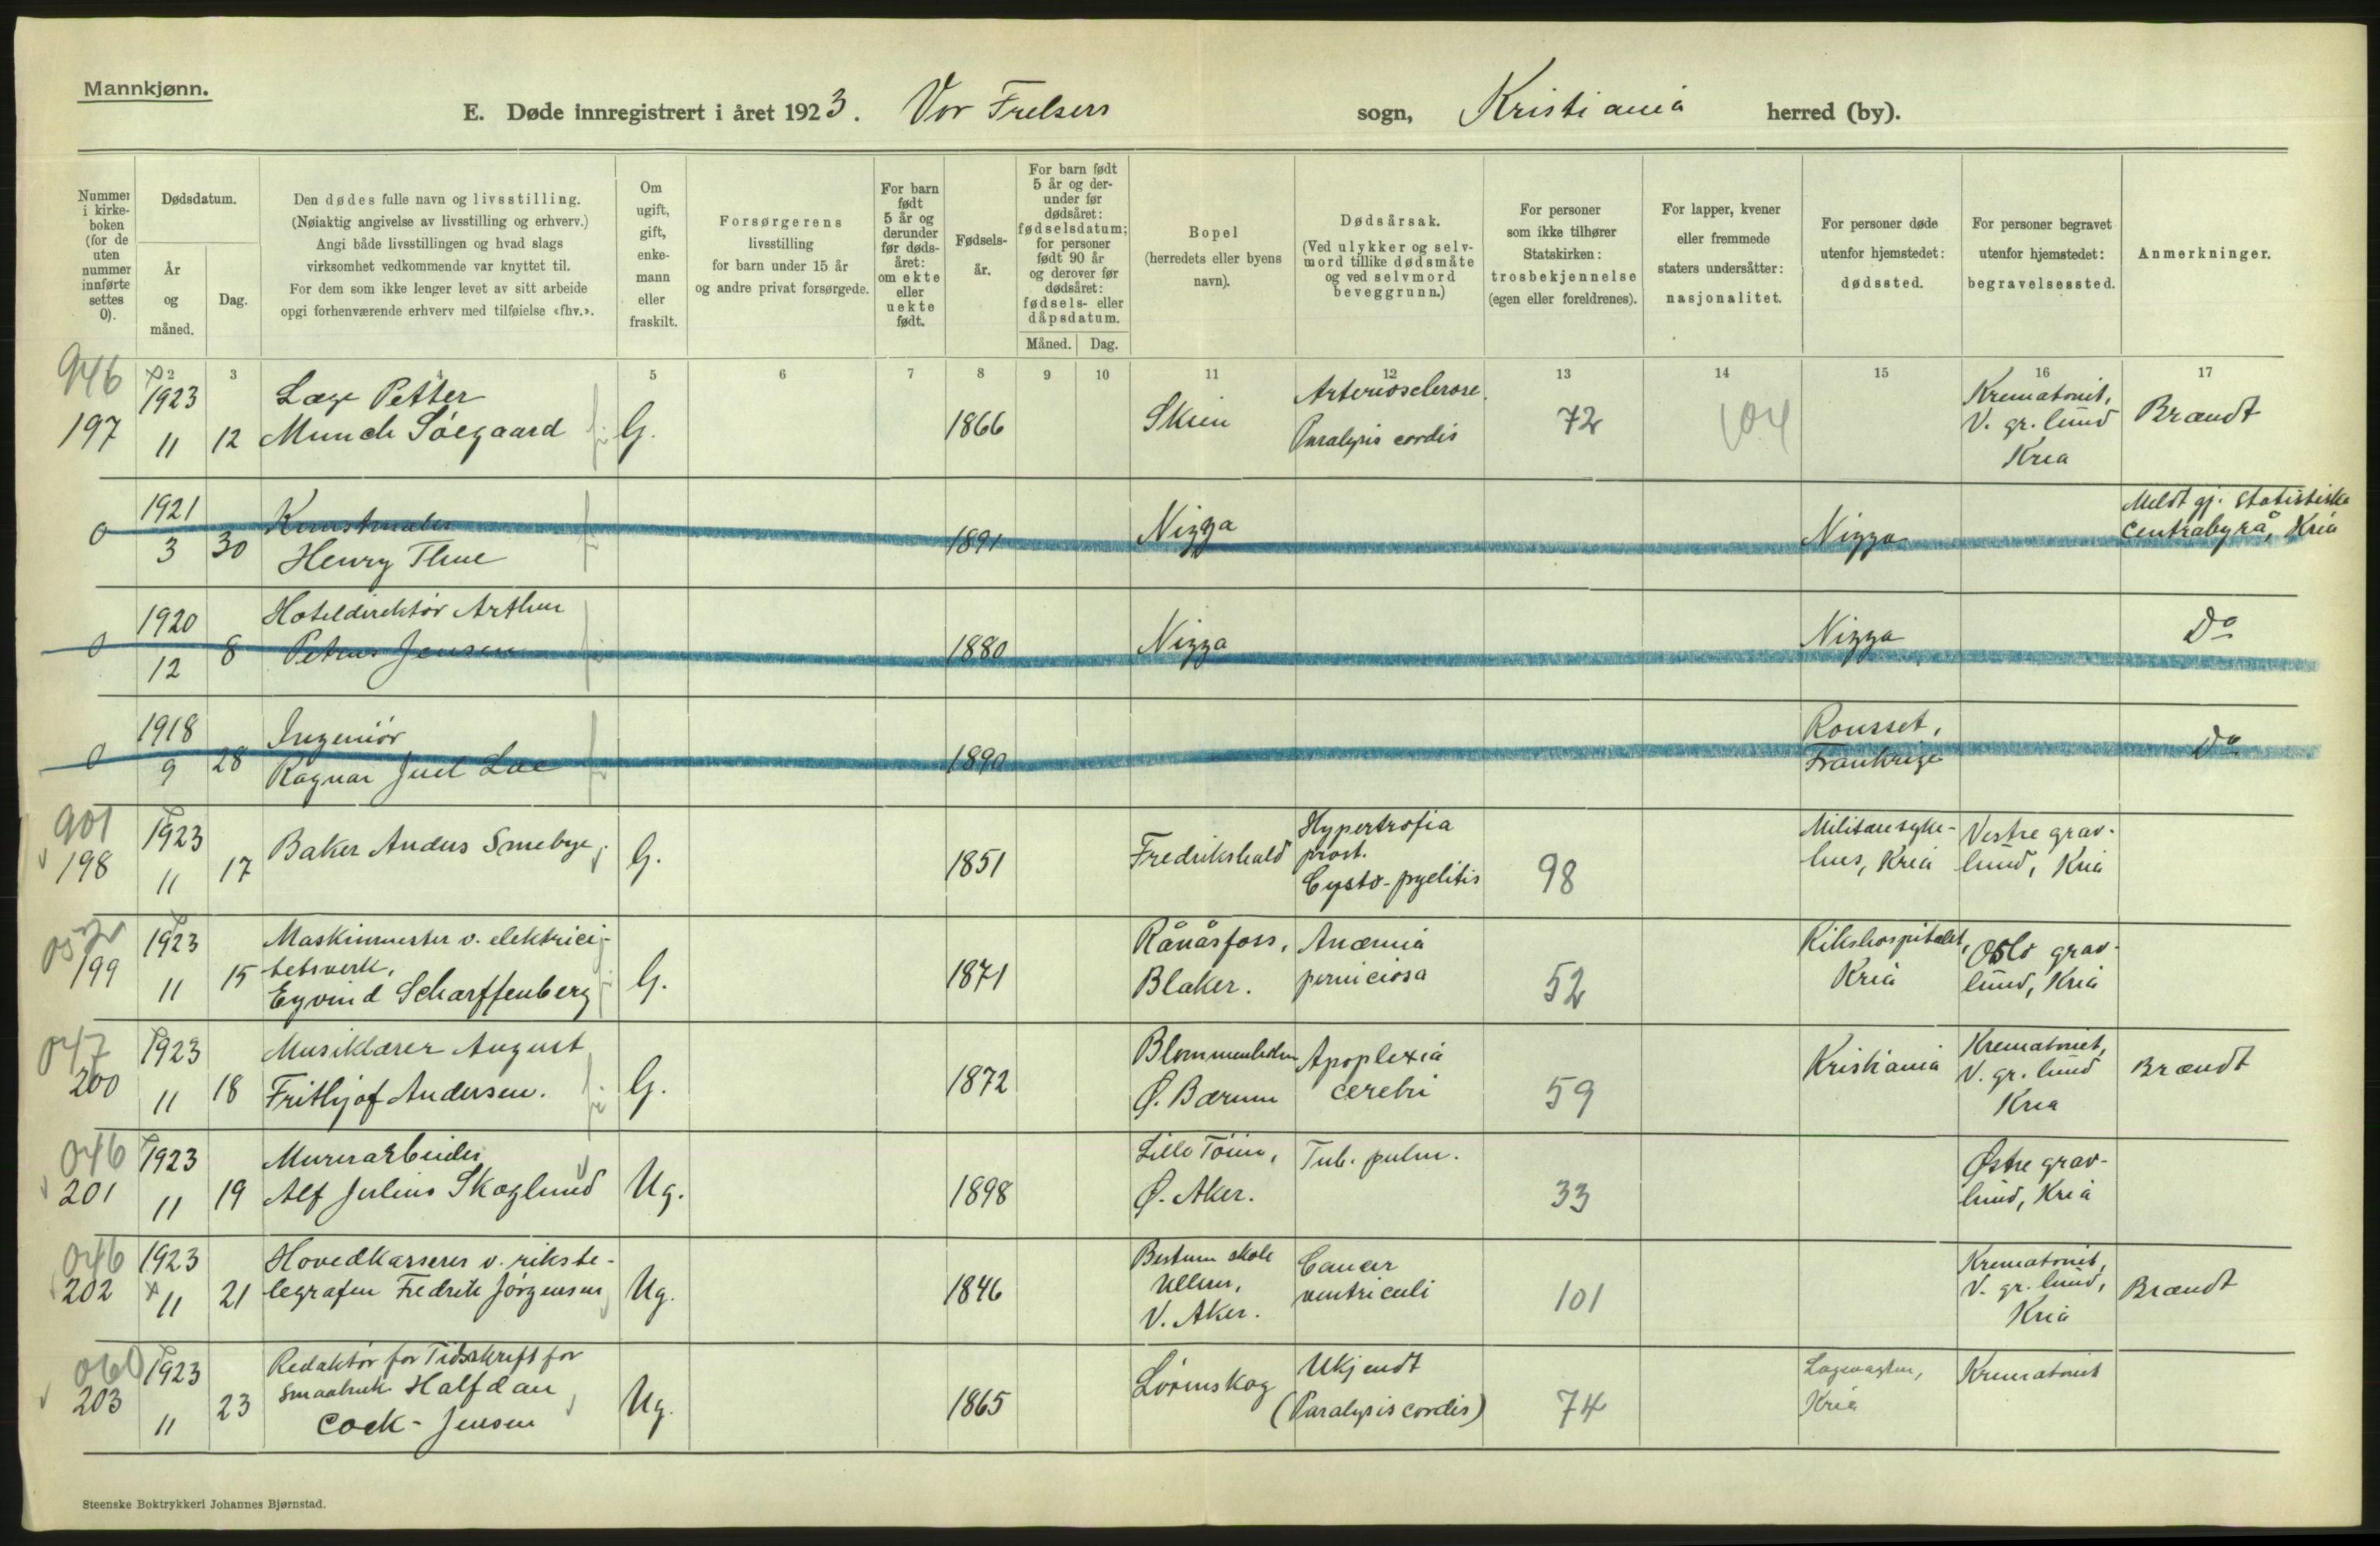 Mannkjønn.
E. Døde innregistrert i året 1923. Vor Frelsers sogn, Kristiania herred (by).
Nummer i kirkeboken (for de uten nummer innførte settes 0).
Dødsdatum.
År og måned.
Dag.
Den dødes fulle navn og livsstilling.
(Nøiaktig angivelse av livsstilling og erhverv.)
Angi både livsstillingen og hvad slags
virksomhet vedkommende var knyttet til.
For dem som ikke lenger levet av sitt arbeide
opgi forhenværende erhverv med tilføielse «fhv.».
Om ugift, gift, enkemann eller fraskilt.
Forsørgerens
livsstilling
for barn under 15 år
og andre privat forsørgede.
For barn født 5 år og derunder før dødsåret: om ekte eller uekte født.
Fødselsår.
For barn født 5 år og derunder før dødsåret: fødselsdatum; for personer født 90 år og derover før dødsåret: fødsels- eller dåpsdatum.
Måned. Dag.
Bopel
(herredets eller byens
navn).
Dødsårsak.
(Ved ulykker og selvmord tillike dødsmåte og ved selvmord beveggrunn.)
For personer
som ikke tilhører
Statskirken:
trosbekjennelse
(egen eller foreldrenes).
For lapper, kvener
eller fremmede
staters undersåtter:
nasjonalitet.
For personer døde
utenfor hjemstedet:
dødssted.
For personer begravet
utenfor hjemstedet:
begravelsessted.
Anmerkninger.
2 3 4 5 6 7 8 9 10 11 12 13 14 15 16 17
946
197 1923 11 12 Læge Petter
Munch Søegaard G. 1866 Skien Arteriosclerose.
Paralysis cordis 72 104 Krematoriet,
V. gr. lund
Kria Brandt
0 1921 3 30 Kunstmaler
Henry Thue 1891 Nizza Nizza Meldt gj. statistiske
Centralbyrå, Kria
0 1920 12 8 Hoteldirektør Arthur
Petrus Jensen 1880 Nizza Nizza Do
0 1918 9 28 Ingeniør
Ragnar Juel Lae 1890 Rousset,
Frankrige Do
901
198 1923 11 17 Baker Anders Smebye G. 1851 Fredrikshald Hypertrofia
prost.
Cysto-pyelitis 98 Militæresyke-
hus, Kria Vestre grav-
lund, Kria
199 1923 11 15 Maskinmester v. elektrici-
tetsverk,
Eyvind Scharffenberg G. 1871 Rånåsfoss,
Blaker. Anæmia
perniciosa 52 Rikshospitalet,
Kria Oslo grav-
lund, Kria
047
200 1923 11 18 Musiklærer August
Frithjof Andersen. G. 1872 Blommenholm
Ø. Bærum Apoplexia
cerebri 59 Kristiania Krematoriet,
V. gr. lund
Kria Brandt
046
201 1923 11 19 Murerarbeider
Alf Julius Skoglund Ug. 1898 Lille Tøien,
Ø. Aker. Tub. pulm. 33 Østre grav-
lund, Kria
046
202 1923 11 21 Hovedkasserer v. rikste-
legrafen Fredrik Jørgensen Ug. 1846 Bestum skole
Ullern,
V. Aker. Cancer
ventriculi 101 Krematoriet,
V. gr. lund,
Kria Brandt
060
203 1923 11 23 Redaktør for Tidsskrift for
Smaabruk Halfdan
Cock-Jensen Ug. 1865 Lørenskog Ukjendt
(Paralysis cordis) 74 Lægevagten,
Kria Krematoriet
Steenske Boktrykkeri Johannes Bjørnstad.